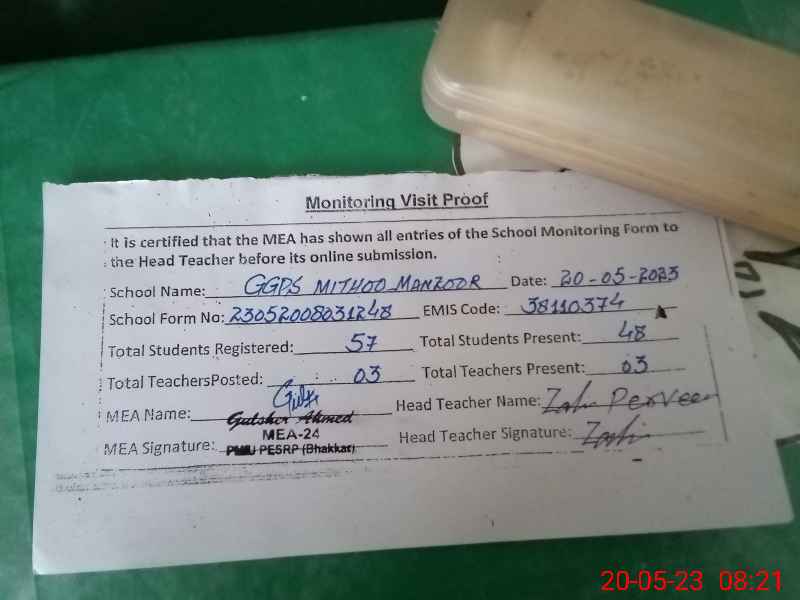 Monitoring Visit Proof
It is certified that the MEA has shown all entries of the School Monitoring Form to
the Head Teacher before its online submission.
School Name: GGPS MITHOO MANZOOR Date: 20-05-2023
School Form No: 23052008031248 EMIS Code: 38110374
Total Students Registered: 57 Total Students Present: 48
Total TeachersPosted: 03 Total Teachers Present: 03
MEA Name: Gulsher Ahmed Head Teacher Name: Perveen
MEA-24
MEA Signature: PMIU PESRP (Bhakkar) Head Teacher Signature:
20-05-23 08:21